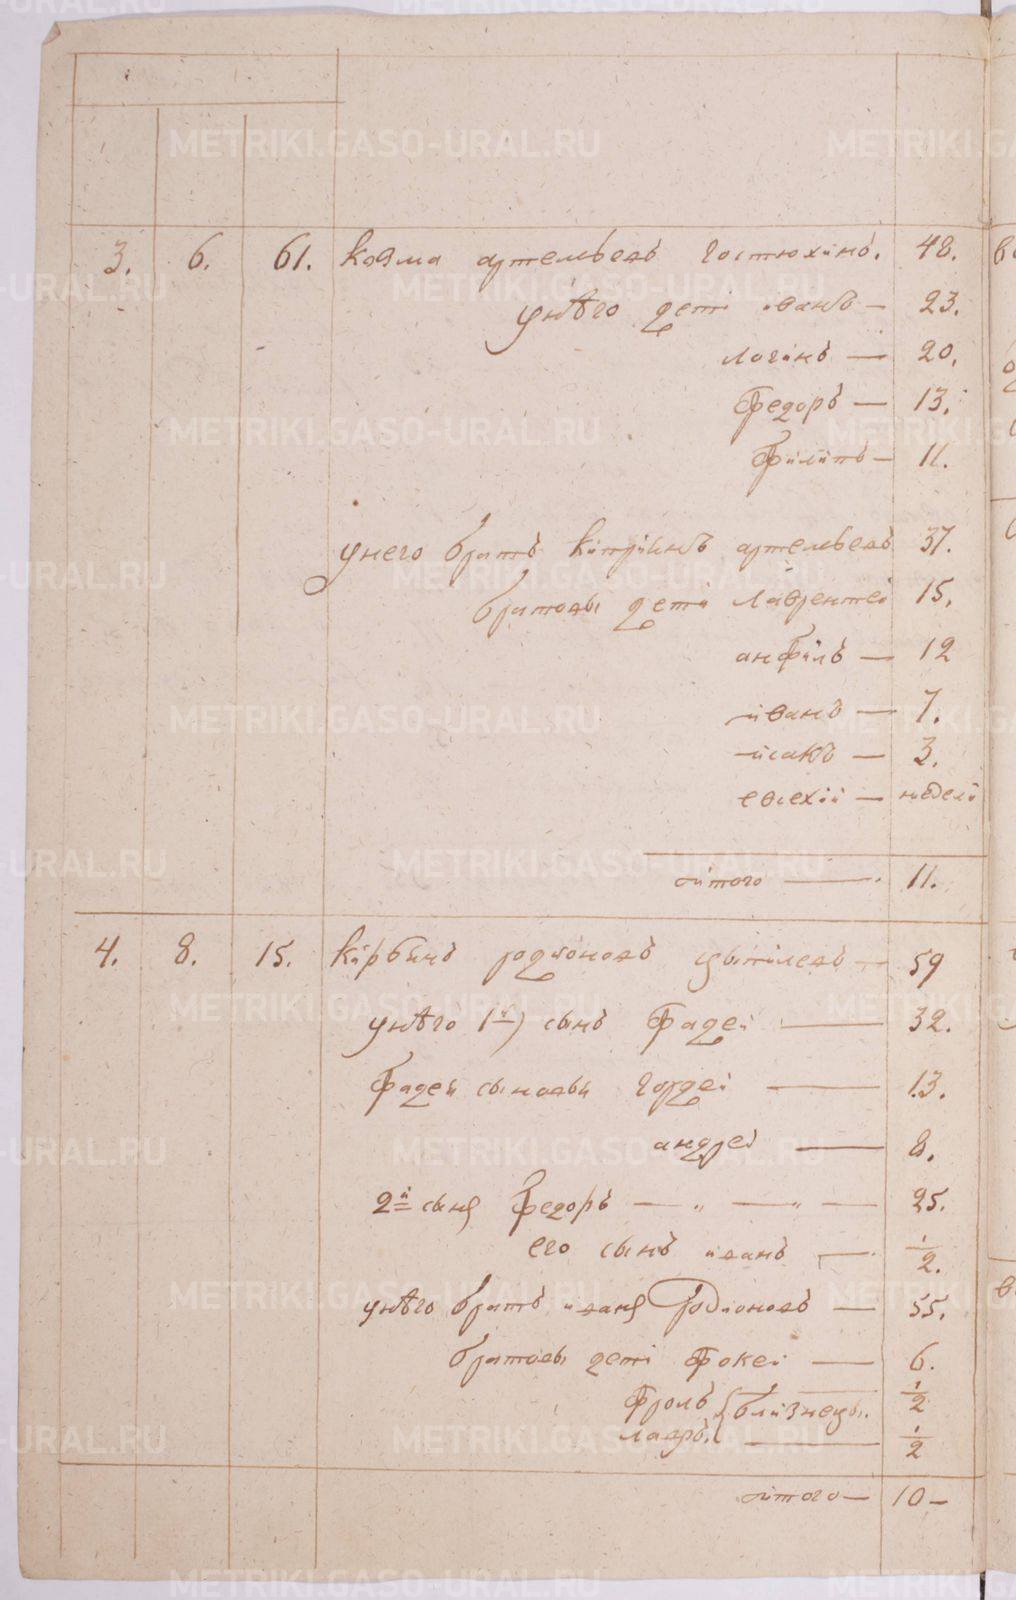 3. 6. 61. козма артемьевъ Гостюхинъ. 48.
унѣго дети иванъ — 23.
логинъ — 20.
Федоръ — 13.
Филипъ — 11.
унего братъ Киприянъ артемьевъ 37.
братовы дети Лаврентей 15.
анфилъ — 12
иванъ — 7.
исакъ — 3.
евсехий — недели
итого — 11.
4. 8. 15. родионовъ — 59
унѣго 1й) сынъ Фадей — 32.
Фадей сыновьи Гордей — 13.
андрей — 8.
2й сыня Федоръ — „ — „ — 25.
его сынъ иванъ — 1/2.
унѣго братъ иваня Родионовъ — 55.
братовы дети Фокей — 6.
Фролъ { близнецы. 1/2
лавръ. — 1/2
итого — 10 —
METRIKI.GASO-URAL.RU